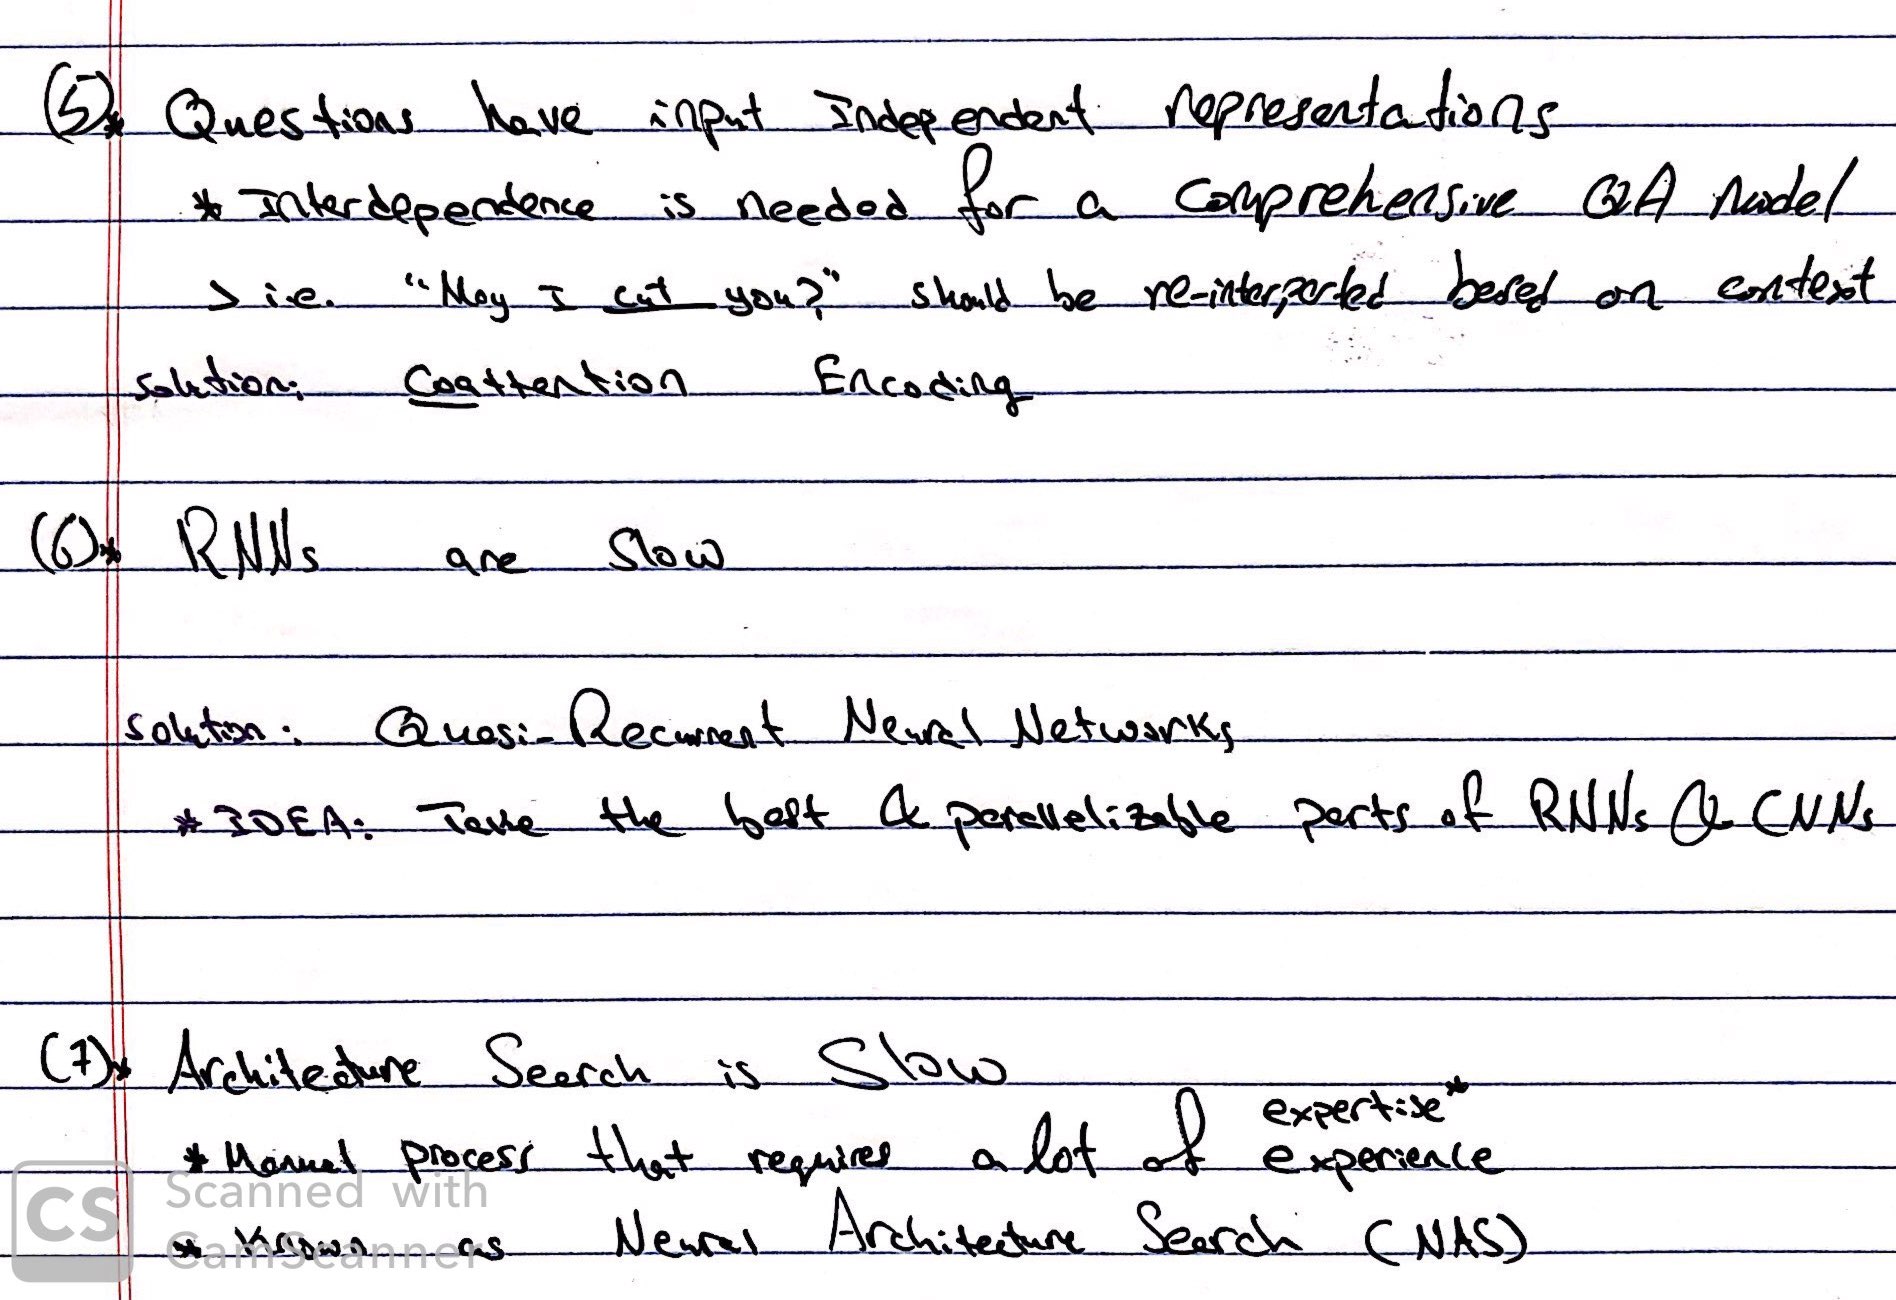 (5)* Questions have input Independent representations
* Interdependence is needed for a comprehensive QA model
> i.e. "May I cut you?" should be re-interperted based on context
solution: Coattention Encoding
(6)* RNNs are Slow
solution: Quasi-Recurrent Neural Networks
* IDEA: Take the best & parallelizable parts of RNNs & CNNs
(7)* Architecture Search is Slow
expertise*
* Manual process that requires a lot of experience
* Known as Neural Architecture Search (NAS)
CS Scanned with
CamScanner